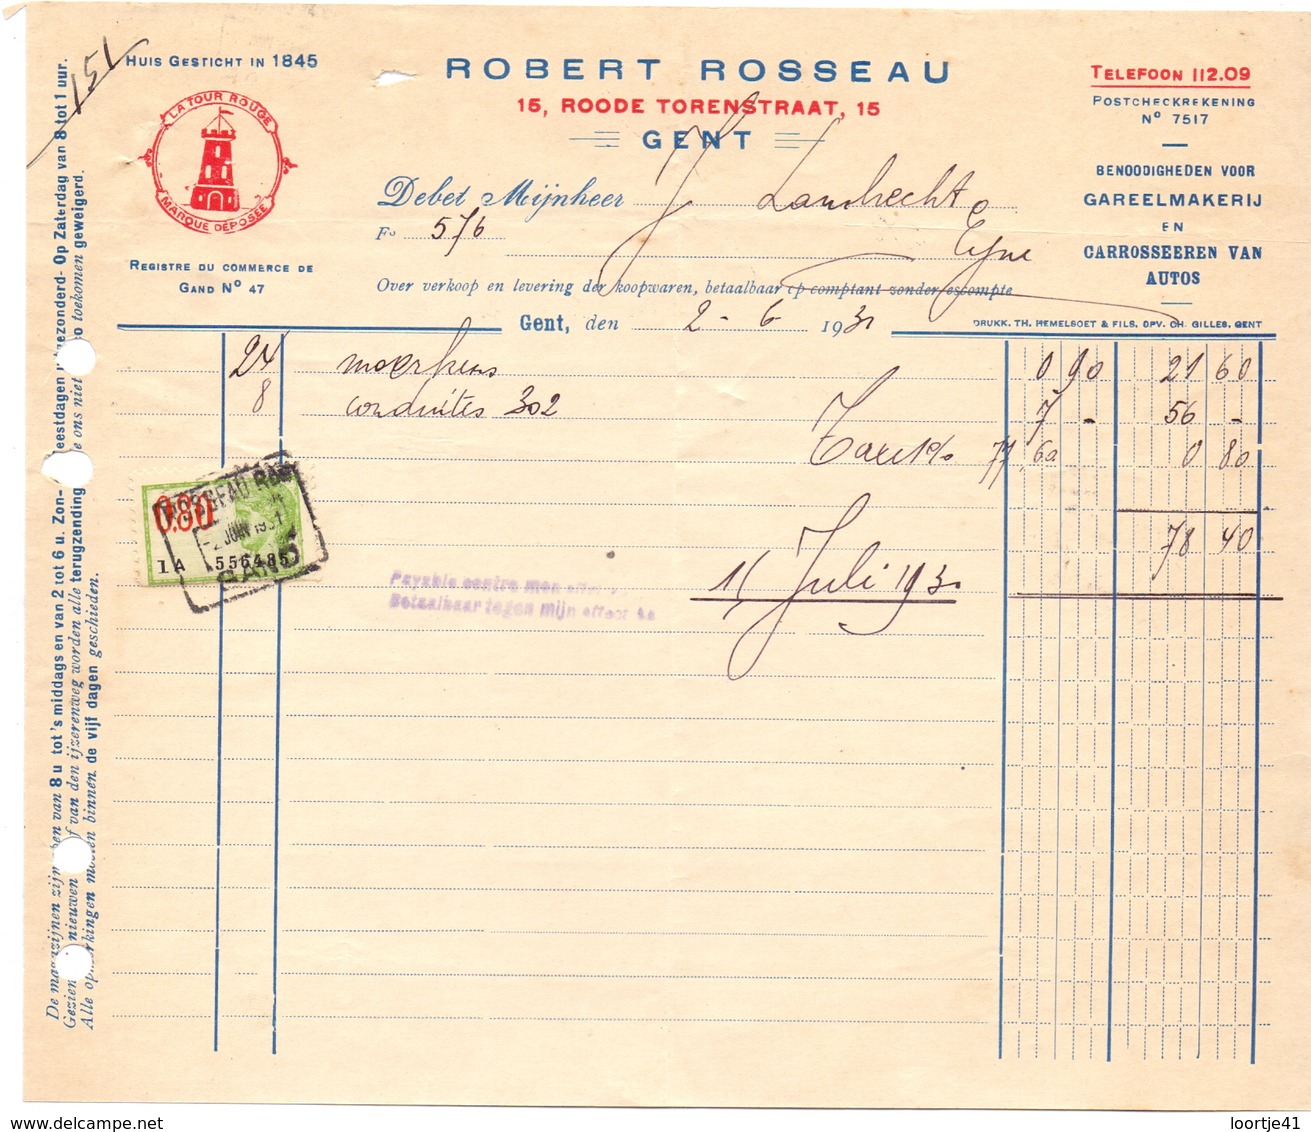 151
HUIS GESTICHT IN 1845
LA TOUR ROUGE
MARQUE DÉPOSÉE
REGISTRE DU COMMERCE DE
GAND Nº 47
ROBERT ROSSEAU
15, ROODE TORENSTRAAT, 15
GENT
TELEFOON 112.09
POSTCHECKREKENING
Nº 7517
BENOODIGHEDEN VOOR
GAREELMAKERIJ
EN
CARROSSEEREN VAN
AUTOS
Debet Mijnheer J. Lambrecht
Fº 576 Eyne
Over verkoop en levering der koopwaren, betaalbaar op comptant zonder escompte
Gent, den 2 - 6 1931
DRUKK. TH. HEMELSOET & FILS, OPV. CH. GILLES, GENT
24 0 90 21 60
8 conduites 302 7 - 56 -
Taxe 1% 77,60 0 80
78 40
15 Juli 1931
0.80
ROSSEAU
-2 JUIN 1931
1A 556485
GAND
Payable contre mon
Betaalbaar tegen mijn
De magazijnen zijn open van 8 u tot 's middags en van 2 tot 6 u. Zon- feestdagen uitgezonderd- Op Zaterdag van 8 tot 1 uur.
Gezien nieuwen van den ijzerenweg worden alle terugzending ons niet toekomen geweigerd.
Alle opmerkingen moeten binnen de vijf dagen geschieden.
loortje41
www.delcampe.net